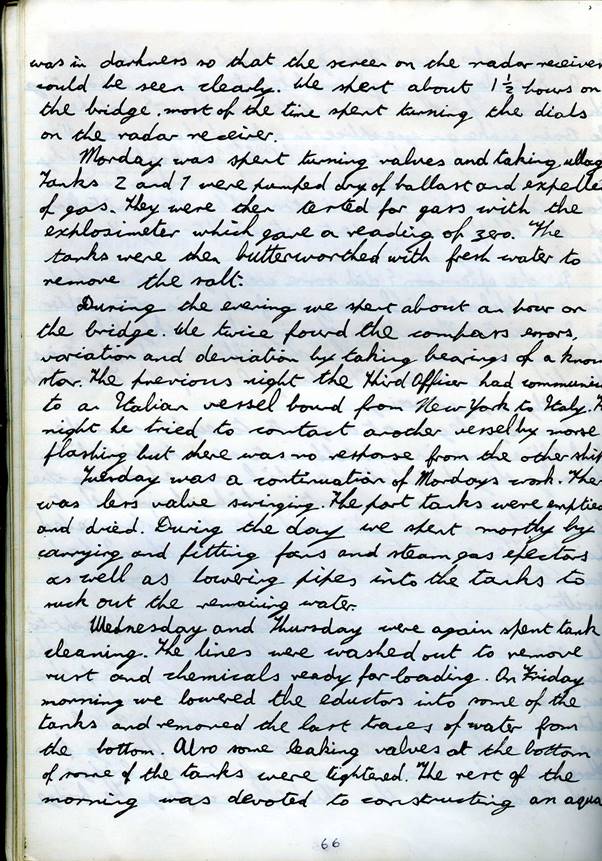 was in darkness so that the screen on the radar receiver
could be seen clearly. We spent about 1½ hours on
the bridge, most of the time spent turning the dials
on the radar receiver.
Monday was spent turning valves and taking ullag
Tanks 2 and 7 were pumped dry of ballast and expelle
of gas. They were then tested for gas with the
explosimeter which gave a reading of zero. The
tanks were then butterworthed with fresh water to
remove the salt.
During the evening we spent about an hour on
the bridge. We twice found the compass errors,
variation and deviation by taking bearings of a know
star. The previous night the Third Officer had communic
to an Italian vessel bound from New York to Italy.
night he tried to contact another vessel by morse
flashing but there was no response from the other ship
Tuesday was a continuation of Mondays work. Ther
was less valve swinging. The port tanks were emptied
and dried. During the day we spent mostly by
carrying and fitting fans and steam gas ejectors
as well as lowering pipes into the tanks to
suck out the remaining water.
Wednesday and Thursday were again spent tank
cleaning. The lines were washed out to remove
rust and chemicals ready for loading. On Friday
morning we lowered the eductors into some of the
tanks and removed the last traces of water from
the bottom. Also some leaking valves at the bottom
of some of the tanks were tightened. The rest of the
morning was devoted to constructing an aqua
66